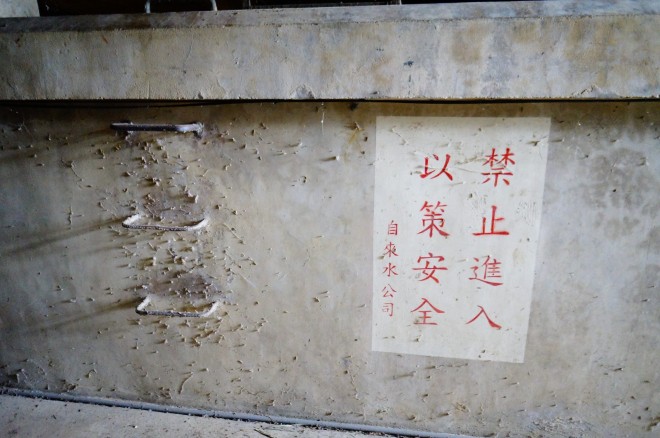 禁止進入
以策安全
自來水公司